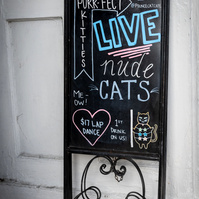 PURR-FECT
KITTIES
LIVE
nude
CATS
ME
OW!
$17 LAP
DANCE
1ST
DRINK
ON US!